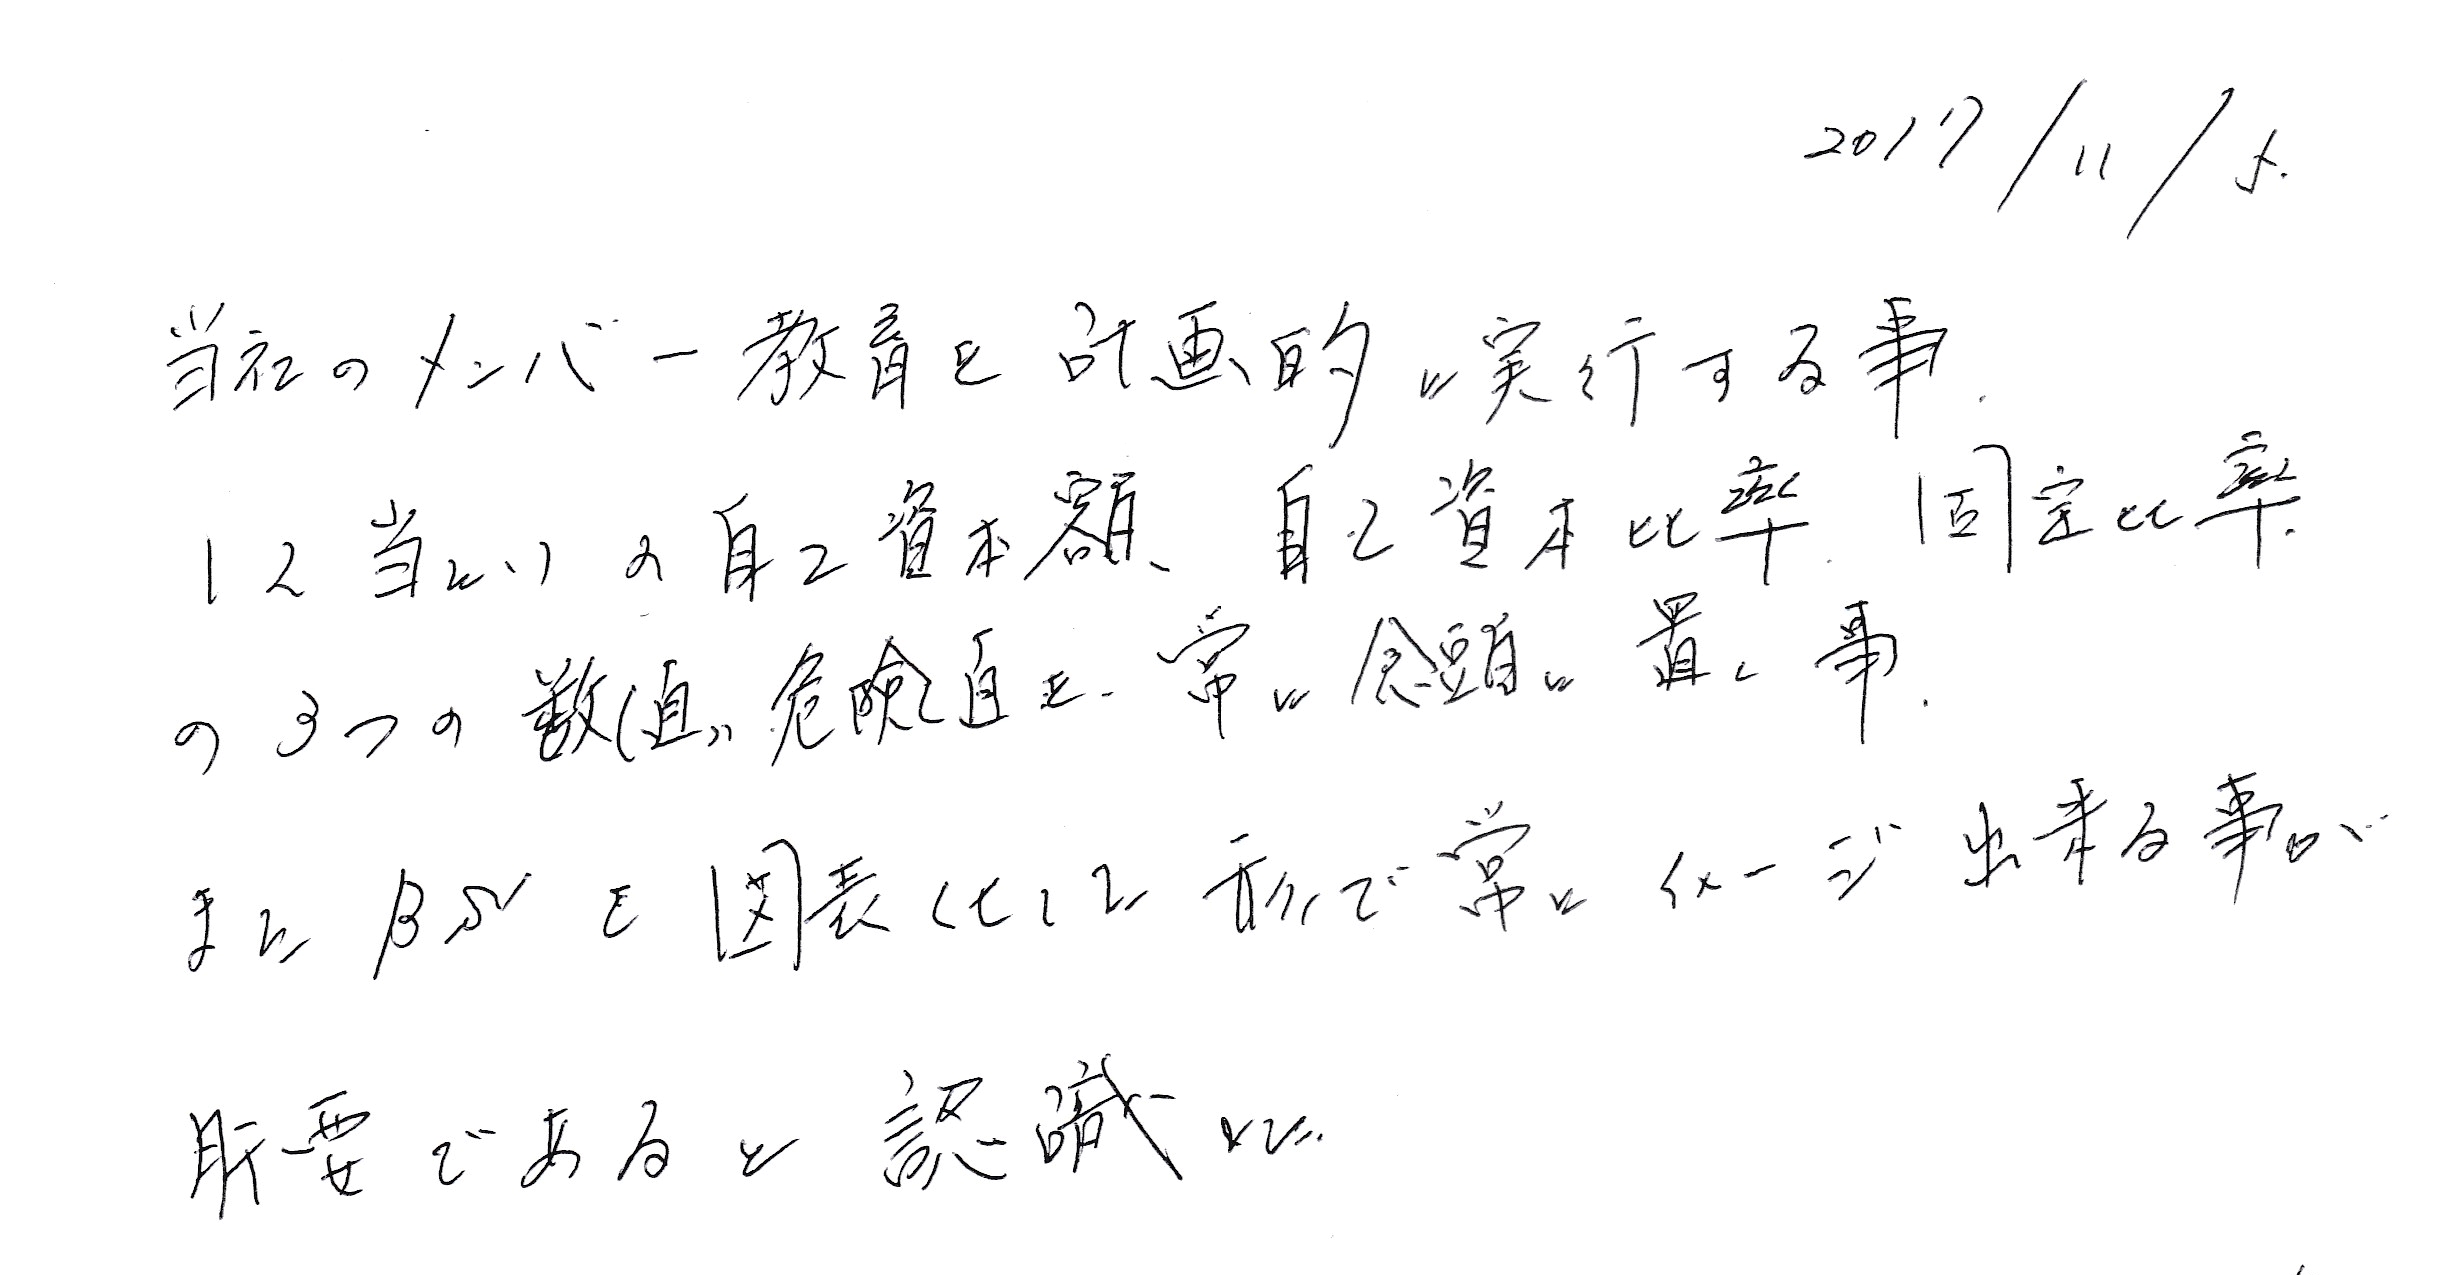 2017/11/5.
当社のメンバー教育を計画的に実行する事.
1人当たりの自己資本額、自己資本比率.固定比率.
の3つの数値、危険値を.常に念頭に置く事.
またBSを図表化した形で常にイメージ出来る事が
肝要であると認識した.